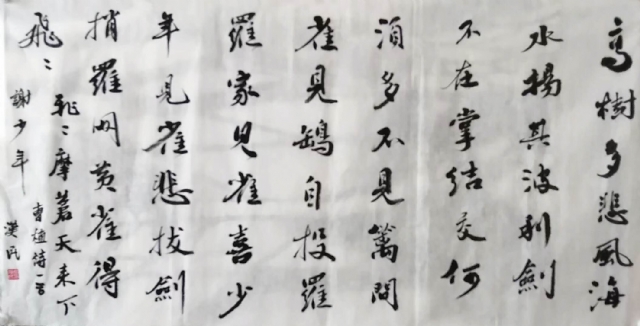 高樹多悲風海
水揚其波利劍
不在掌結交何
須多不見籬間
雀見鷂自投羅
羅家見雀喜少
年見雀悲拔劍
捎羅网黄雀得
飛〻
飛〻摩蒼天来下
謝少年
曹植詩一首
漢民